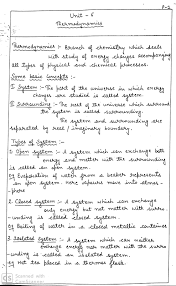 P-2
Unit - 6
Thermodynamics
Thermodynamics :- Branch of chemistry which deals
with study of energy changes accompanying
all types of physical and chemical processes.
Some basic Concepts :-
1) System :- The part of the universe in which energy
changes are studied is called system
2) Surrounding :- The rest of the universe which surround
the system is called surrounding
The system and surrounding are
separated by real / imaginary boundary.
Types of System :-
1. Open system :- A system which can exchange both
energy and matter with the surrounding
is called an open system.
eg Evaporation of water from a beaker represents
an open system. Here vapours move into atmos-
phere
2. Closed system :- A system which can exchange
only energy but not matter with surro
unding is called closed system.
eg Boiling of water in a closed metallic container
3. Isolated System :- A system which can neither
exchange energy nor matter with the surro
unding is called an isolated system.
eg Hot tea placed in a thermos flask
Scanned with
CamScanner